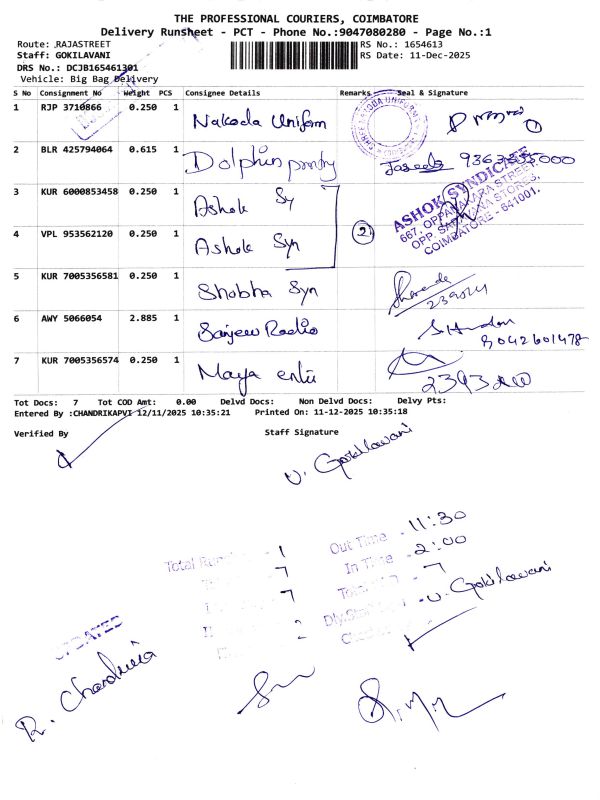 THE PROFESSIONAL COURIERS, COIMBATORE
Delivery Runsheet - PCT - Phone No.:9047080280 - Page No.:1
Route: RAJASTREET RS No.: 1654613
Staff: GOKILAVANI RS Date: 11-Dec-2025
DRS No.: DCJB165461301
Vehicle: Big Bag Delivery
S No Consignment No Weight PCS Consignee Details Remarks Seal & Signature
1 RJP 3710866 0.250 1 Nakoda Uniform
2 BLR 425794064 0.615 1 Dolphin
3 KUR 6000853458 0.250 1 Ashok Sy
ASHOK SYNDICATE
667, OPPANAKARA STREET,
OPP. SARAVANA STORES,
COIMBATORE - 641001.
4 VPL 953562120 0.250 1 Ashok Syn 2
5 KUR 7005356581 0.250 1 Shobha Syn
6 AWY 5066054 2.885 1 Sanjeev Radio 8042601478
7 KUR 7005356574 0.250 1 Maya
Tot Docs: 7 Tot COD Amt: 0.00 Delvd Docs: Non Delvd Docs: Delvy Pts:
Entered By :CHANDRIKAPVI 12/11/2025 10:35:21 Printed On: 11-12-2025 10:35:18
Verified By Staff Signature
V. Gokilavani
Out Time - 11:30
In Time - 2:00
1
7
7
2
7
V. Gokilavani
UPDATED